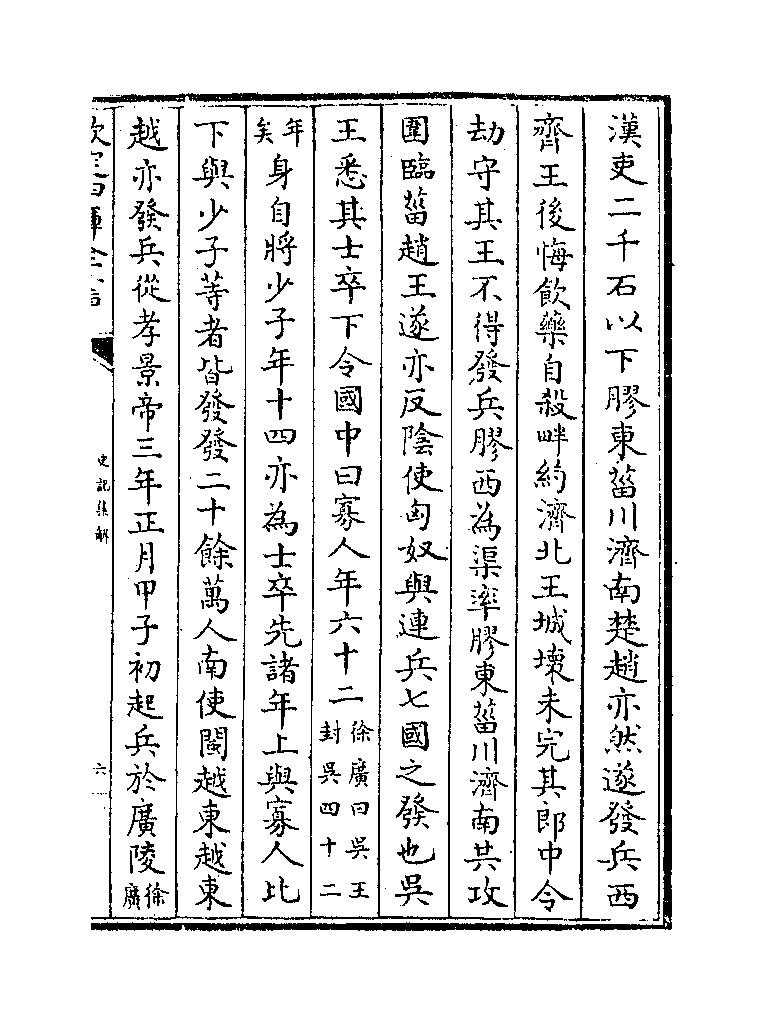 漢吏二千石以下膠東菑川濟南楚趙亦然遂發兵西
齊王後悔飲藥自殺畔約濟北王城壞未完其郎中令
劫守其王不得發兵膠西為渠率膠東菑川濟南共攻
圍臨菑趙王遂亦反陰使匈奴與連兵七國之發也吳
王悉其士卒下令國中曰寡人年六十二徐廣曰吳王封吳四十二
年矣身自將少子年十四亦為士卒先諸年上與寡人比
下與少子等者皆發發二十餘萬人南使閩越東越東
越亦發兵從孝景帝三年正月甲子初起兵於廣陵徐廣
史記集解
六